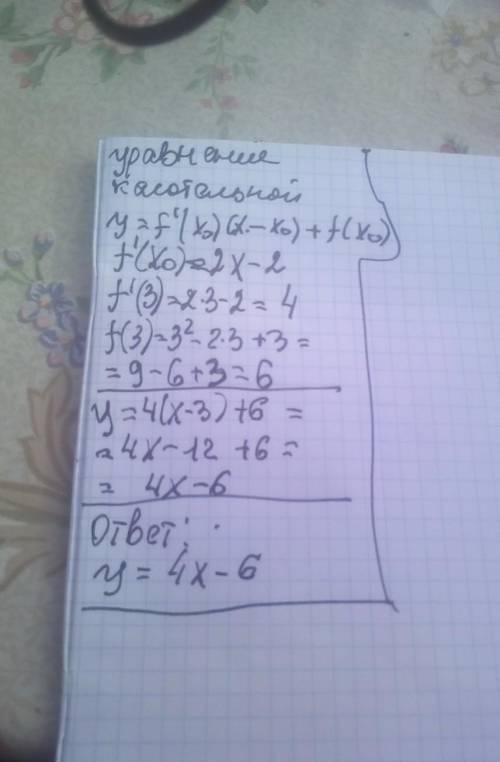 уравнение
касательной
y = f'(x₀)(x - x₀) + f(x₀)
f'(x₀) = 2x - 2
f'(3) = 2·3 - 2 = 4
f(3) = 3² - 2·3 + 3 =
= 9 - 6 + 3 = 6
y = 4(x - 3) + 6 =
= 4x - 12 + 6 =
= 4x - 6
Ответ:
y = 4x - 6